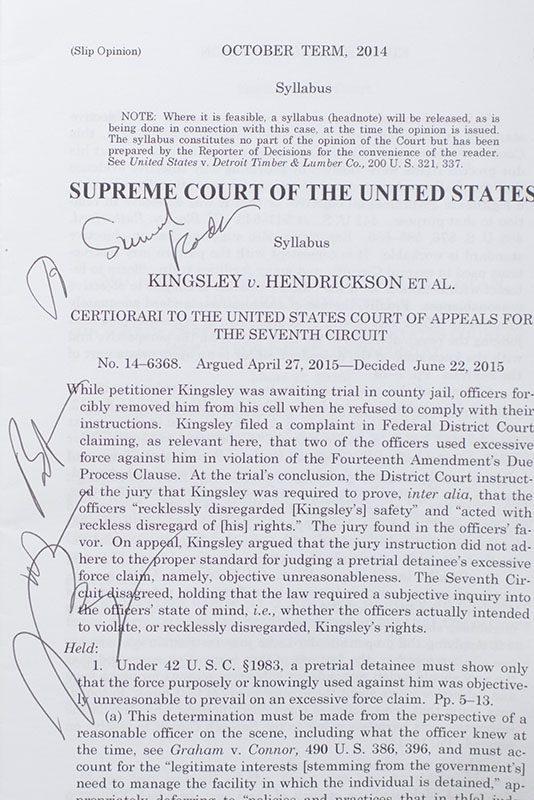 (Slip Opinion)
OCTOBER TERM, 2014
Syllabus
NOTE: Where it is feasible, a syllabus (headnote) will be released, as is
being done in connection with this case, at the time the opinion is issued.
The syllabus constitutes no part of the opinion of the Court but has been
prepared by the Reporter of Decisions for the convenience of the reader.
See United States v. Detroit Timber & Lumber Co., 200 U. S. 321, 337.
SUPREME COURT OF THE UNITED STATES
Syllabus
KINGSLEY v. HENDRICKSON ET AL.
CERTIORARI TO THE UNITED STATES COURT OF APPEALS FOR
THE SEVENTH CIRCUIT
No. 14–6368. Argued April 27, 2015—Decided June 22, 2015
While petitioner Kingsley was awaiting trial in county jail, officers for-
cibly removed him from his cell when he refused to comply with their
instructions. Kingsley filed a complaint in Federal District Court
claiming, as relevant here, that two of the officers used excessive
force against him in violation of the Fourteenth Amendment's Due
Process Clause. At the trial's conclusion, the District Court instruct-
ed the jury that Kingsley was required to prove, inter alia, that the
officers “recklessly disregarded [Kingsley's] safety” and “acted with
reckless disregard of [his] rights.” The jury found in the officers' fa-
vor. On appeal, Kingsley argued that the jury instruction did not ad-
here to the proper standard for judging a pretrial detainee's excessive
force claim, namely, objective unreasonableness. The Seventh Cir-
cuit disagreed, holding that the law required a subjective inquiry into
the officers' state of mind, i.e., whether the officers actually intended
to violate, or recklessly disregarded, Kingsley's rights.
Held:
1. Under 42 U. S. C. §1983, a pretrial detainee must show only
that the force purposely or knowingly used against him was objective-
ly unreasonable to prevail on an excessive force claim. Pp. 5–13.
(a) This determination must be made from the perspective of a
reasonable officer on the scene, including what the officer knew at
the time, see Graham v. Connor, 490 U. S. 386, 396, and must ac-
count for the “legitimate interests [stemming from the government's]
need to manage the facility in which the individual is detained,” ap-
propriately deferring to “policies and practices that in th[e]